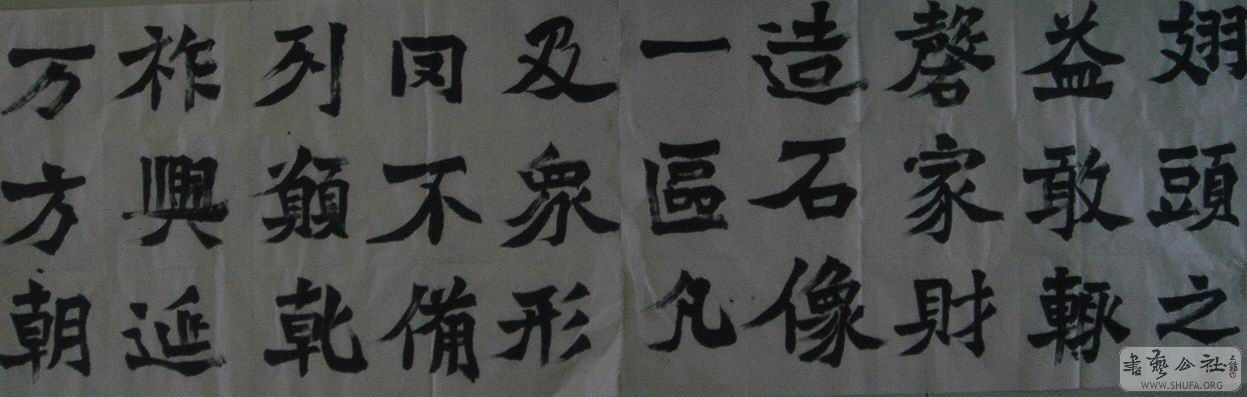 翅頭之
益敢輙
磬家財
造石像
一區凡
及衆形
罔不備
列願乾
祚興延
万方朝
書藝公社
WWW.SHUFA.ORG